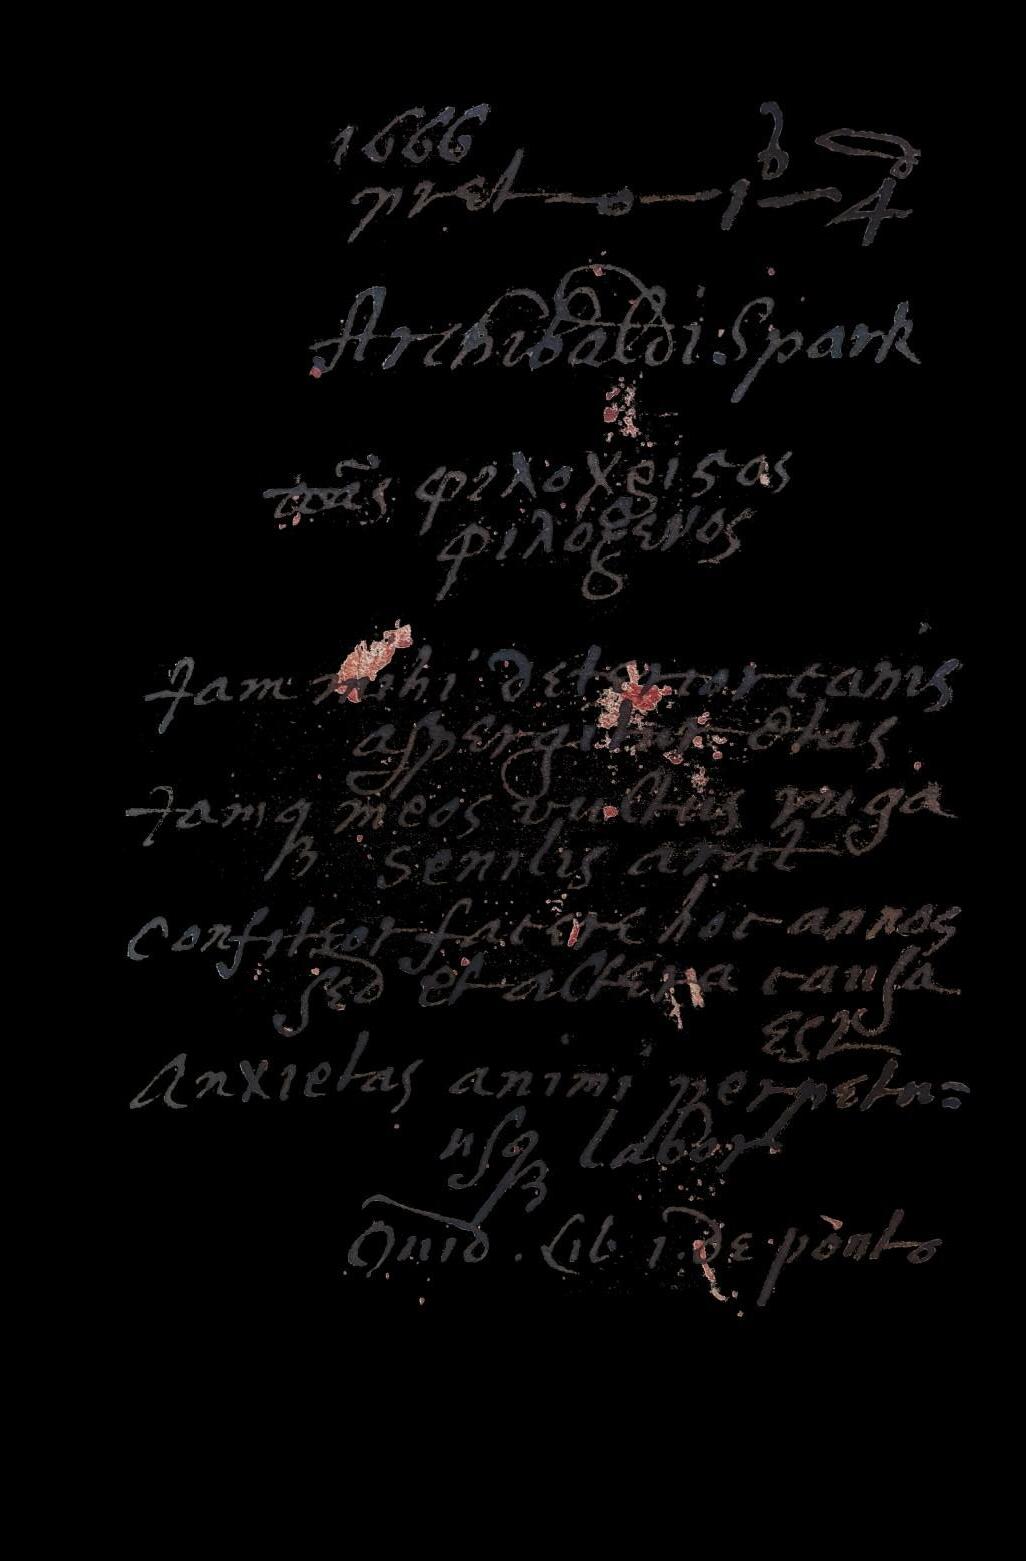 1666
pret — 0 — 1 — 4
Archibaldi : Spark
φιλοχριςος
φιλοξενος
Jam mihi deterior canis
aspergitur ætas
Jamq meos vultus ruga
senilis arat
Confiteor facere hoc annos
sed et altera causa
est
Anxietas animi perpetu=
usq labor
Ouid . Lib 1 . de ponto